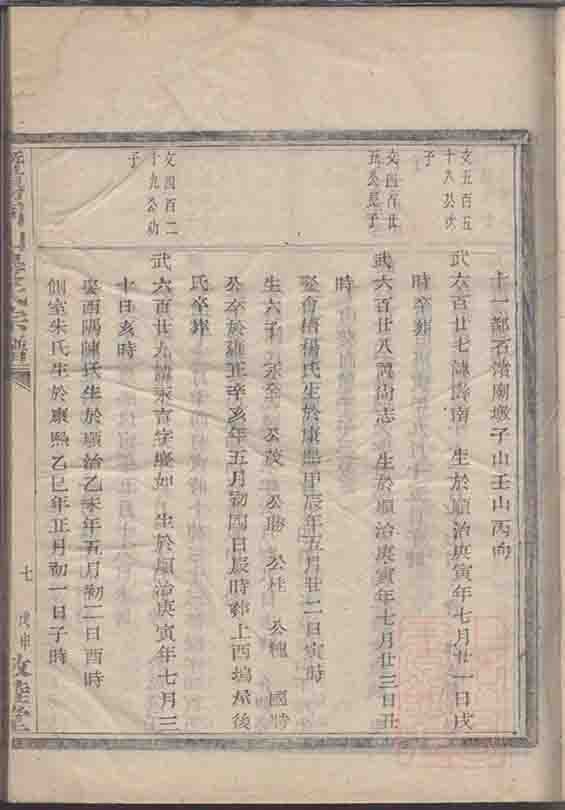 十一都石濱廟墩子山壬山丙向
文五百五
十八公次
子
武六百廿七諱壽南 生於順治庚寅年七月廿一日戌
時卒葬
文四百廿
五公長子
武六百廿八諱尚志 生於順治庚寅年七月廿三日丑
時
娶會稽楊氏生於康熙甲辰年五月廿二日寅時
生六子 公茂 公勝 公桂 國時
公卒於雍正辛亥年五月初四日辰時葬上西塢屋後
氏卒葬
文四百二
十九公幼
子
武六百廿九諱永言字 如 生於順治庚寅年七月三
十日亥時
娶酉陽陳氏生於順治乙未年五月初二日酉時
側室朱氏生於康熙乙巳年正月初一日子時
氏宗譜
七
戊申
敦睦堂